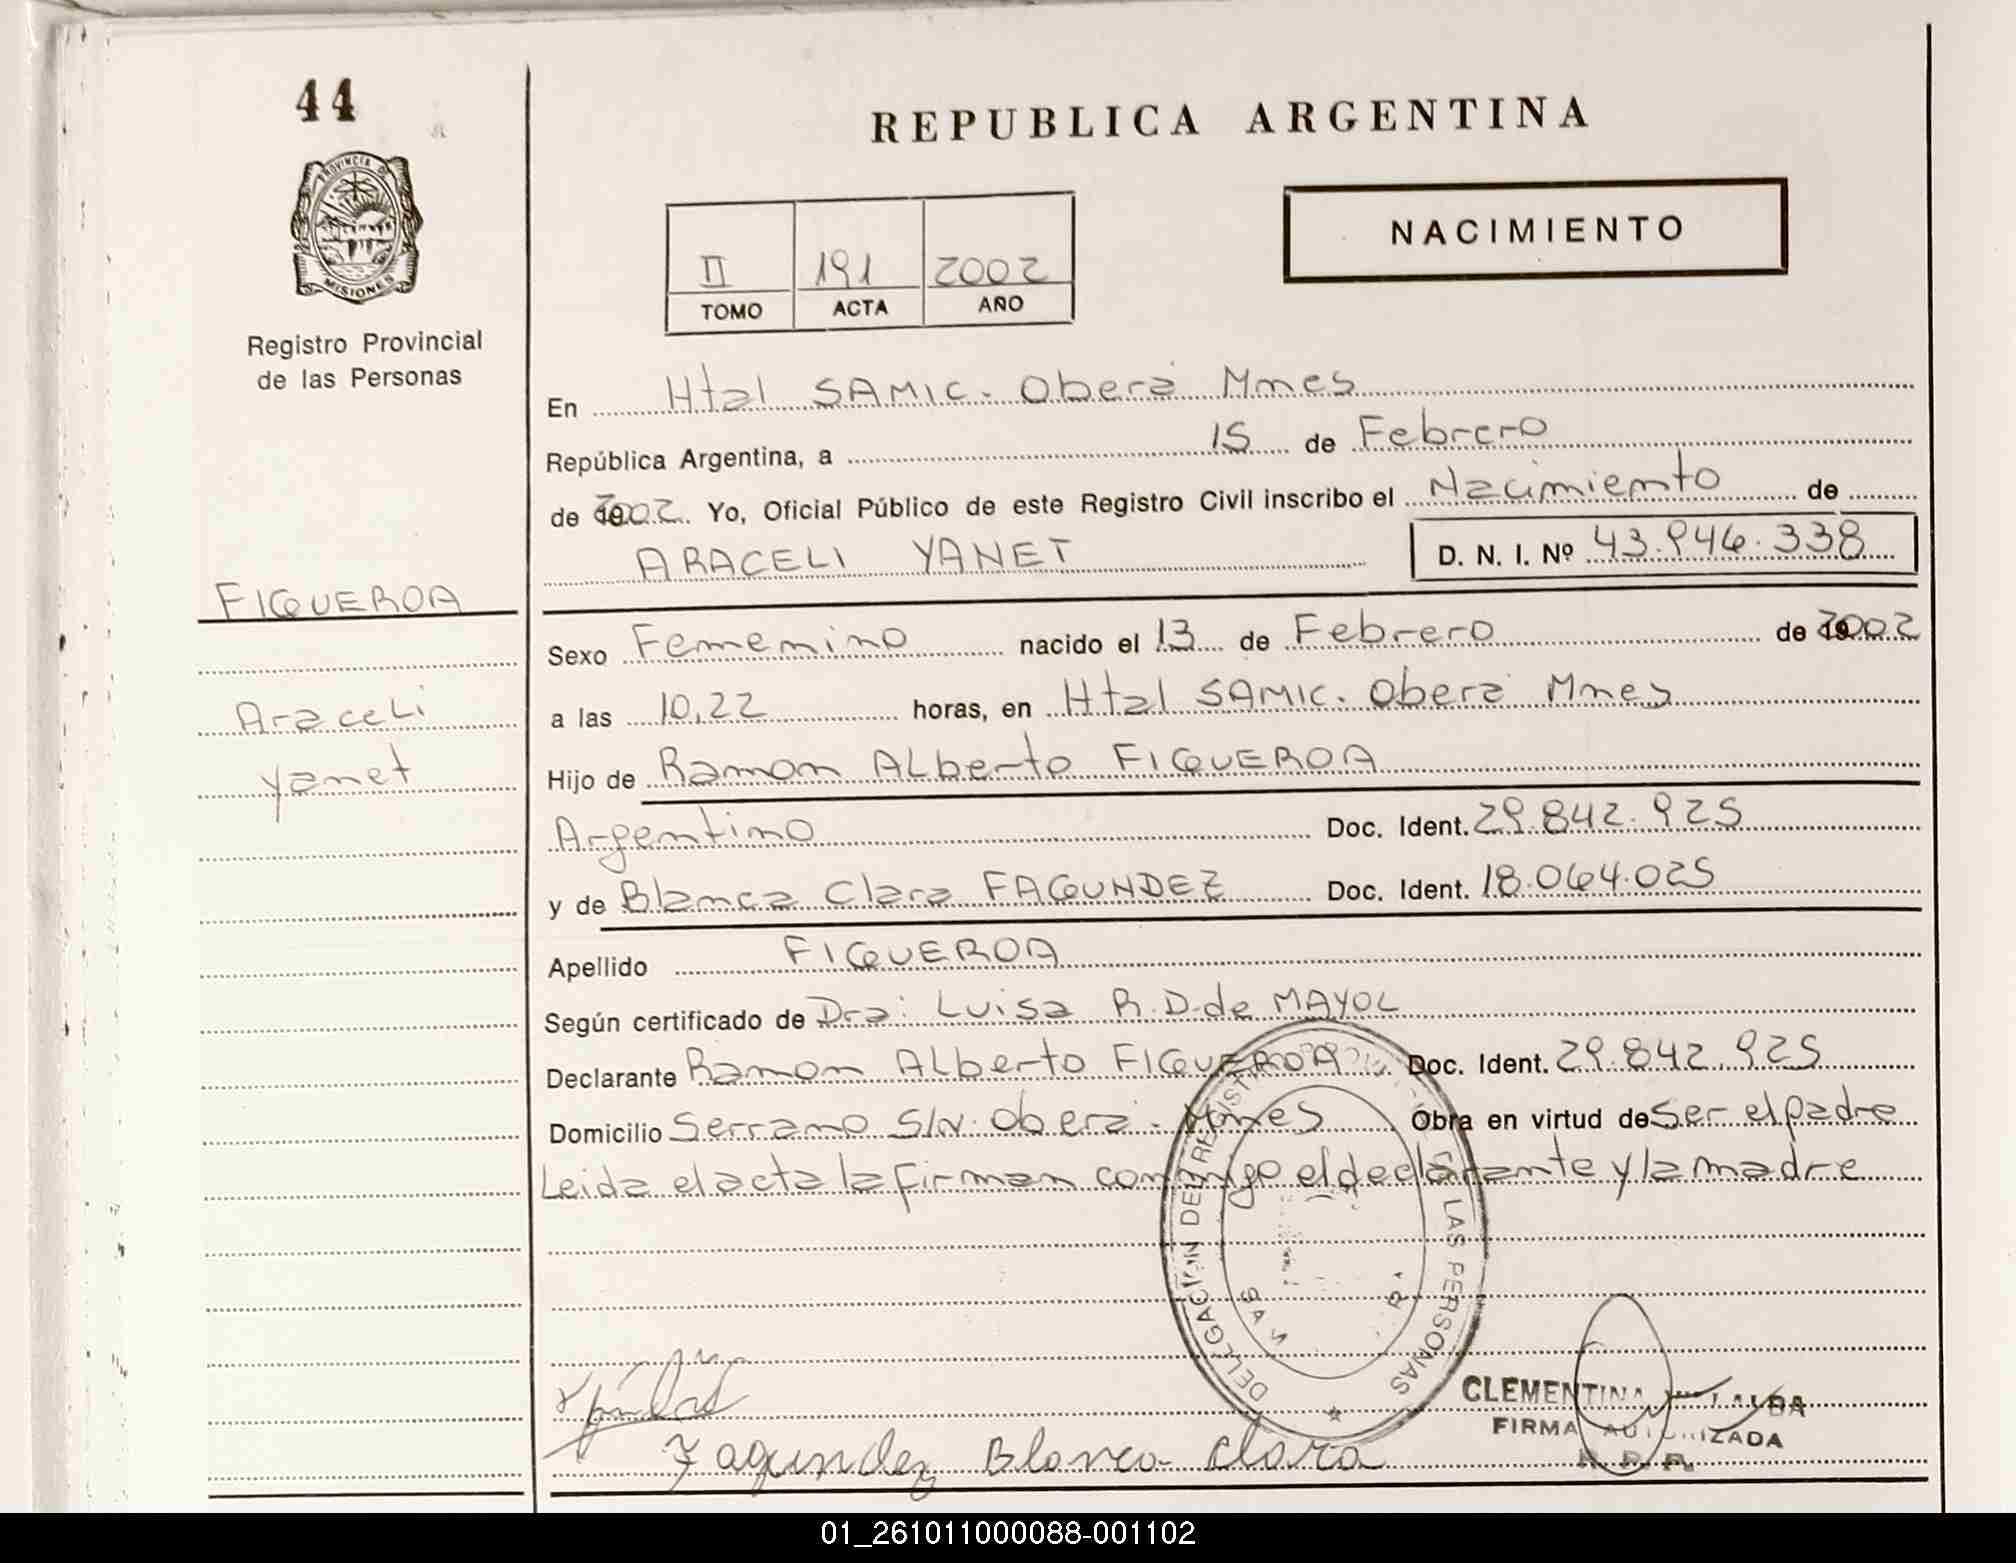 44
REPUBLICA ARGENTINA
PROVINCIA DE
MISIONES
Registro Provincial
de las Personas
NACIMIENTO
II 191 2002
TOMO ACTA AÑO
En Htal SAMIC. Oberá Mnes
República Argentina, a 15 de Febrero
de 2002. Yo, Oficial Público de este Registro Civil inscribo el Nacimiento de
ARACELI YANET D. N. I. Nº 43.946.338
FIGUEROA
Araceli
Yanet
Sexo Femenino nacido el 13 de Febrero de 2002
a las 10,22 horas, en Htal SAMIC. Oberá Mnes
Hijo de Ramon Alberto FIGUEROA
Argentino Doc. Ident. 29.842.925
y de Blanca Clara FAGUNDEZ Doc. Ident. 18.064.025
Apellido FIGUEROA
Según certificado de Dra: Luisa R.D.de MAYOL
Declarante Ramon Alberto FIGUEROA Doc. Ident. 29.842.925
Domicilio Serrano S/N. Oberá. Mnes Obra en virtud de Ser el padre
Leida el acta la firman conmigo el declarante y la madre
DELEGACION DEL REGISTRO LAS PERSONAS
CLEMENTINA
FIRMA AUTORIZADA
R. P. P.
Fagundez Blanca Clara
01_261011000088-001102